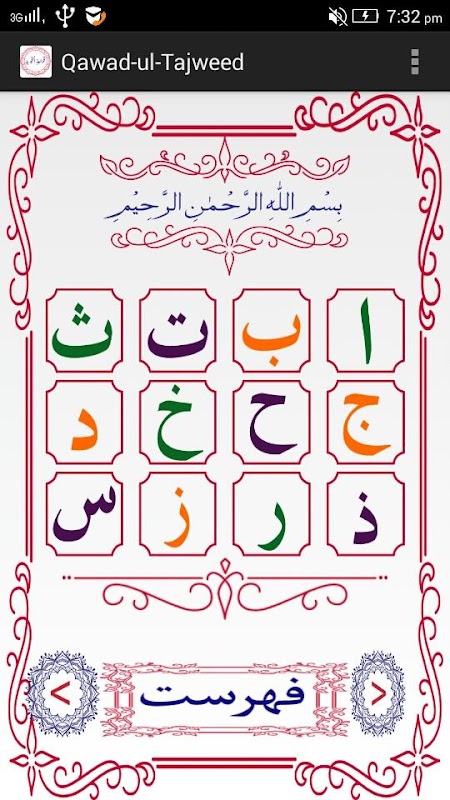 3G 7:32 pm
Qawad-ul-Tajweed
بِسْمِ اللهِ الرَّحْمٰنِ الرَّحِيْمِ
ا ب ت ث
ج ح خ د
ذ ر ز س
< فہرست >